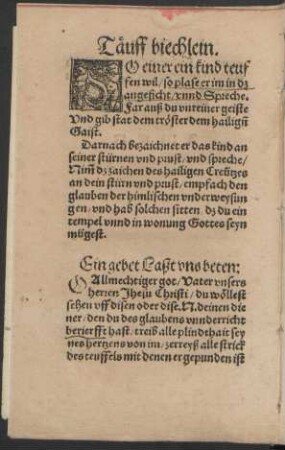 Täuff biechlein.
SO einer ein kind teuf
fen wil/ so plase er im in dz
angesicht/ vnnd Spreche.
Far auß du vnreiner geiste
Vnd gib stat dem tröster dem hailigñ
Gaist.
Darnach bezaichnet er das kind an
seiner stürnen vnd prust/ vnd spreche/
Nim̃ dz zaichen des hailigen Creützes
an dein stürn vnd prust/ empfach den
glauben der himlischen vnderweysun
gen/ vnd hab solchen sitten/ dz du ein
tempel vnnd in wonung Gottes seyn
mügest.
Ein gebet Laßt vns beten:
O Allmechtiger got/ Vater vnsers
herren Jhesu Christi/ du wöllest
sehen vff disen oder dise. N. deinen die
ner/ den du des glaubens vnnderricht
berierfft hast/ treiß alle plindthait sey
nes hertzens von im/ zerreyß alle strick
des teuffels mit denen er gepunden ist